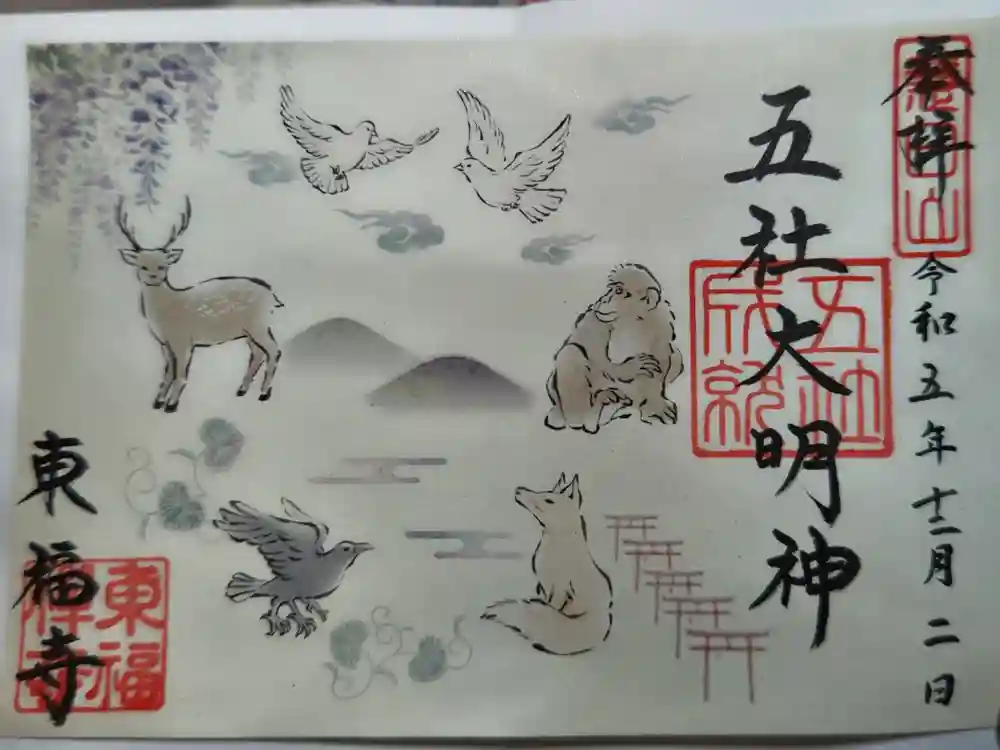 奉拝
令和五年十二月二日
五社大明神
五社
成就
東福寺
東福
禅寺